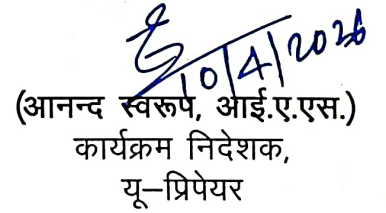 10/4/2026
(आनन्द स्वरूप, आई.ए.एस.)
कार्यक्रम निदेशक,
यू–प्रिपेयर